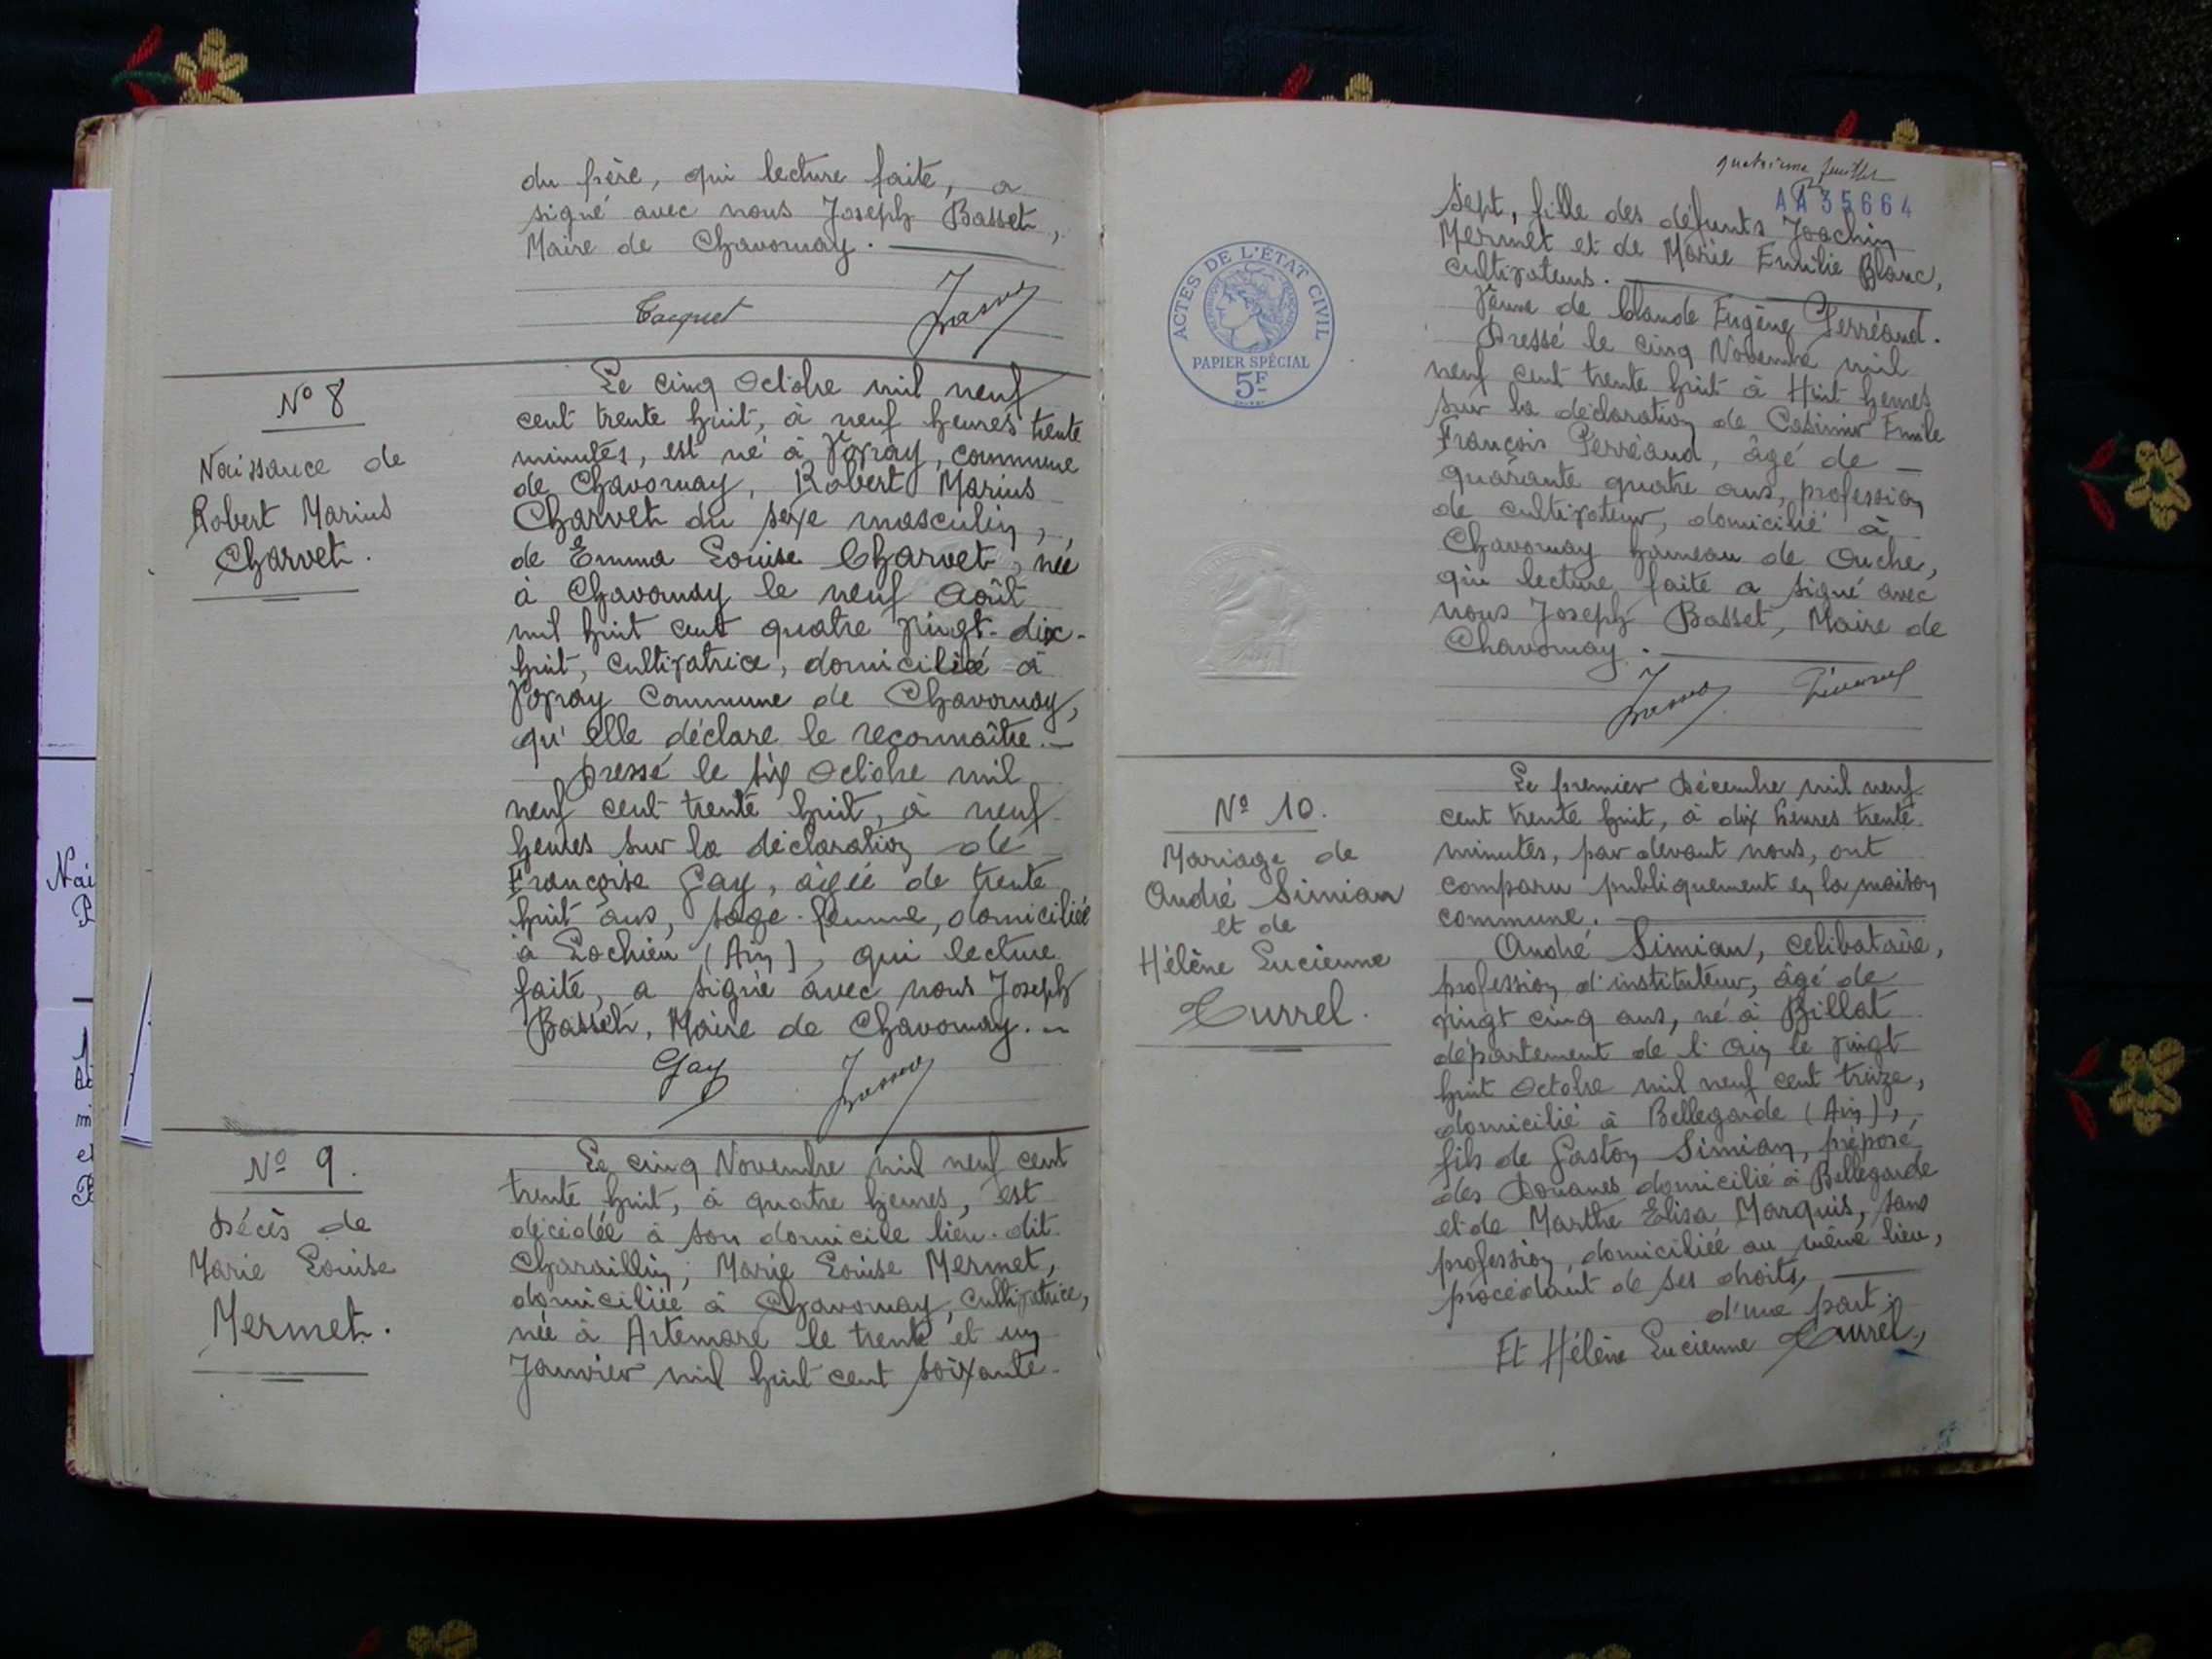 du frère, qui lecture faite, a
signé avec nous Joseph Basset,
Maire de Chavornay.
Tacquet
JBasset
N° 8
Naissance de
Robert Marius
Charvet.
Le cinq Octobre mil neuf
cent trente huit, à neuf heures trente
minutes, est né à Vovray, commune
de Chavornay, Robert Marius
Charvet du sexe masculin,
de Emma Louise Charvet, née
à Chavornay le neuf Août
mil huit cent quatre vingt-dix-
huit, cultivatrice, domiciliée à
Vovray commune de Chavornay,
qu'elle déclare le reconnaître.
Dressé le six Octobre mil
neuf cent trente huit, à neuf
heures sur la déclaration de
Françoise Gay, âgée de trente
huit ans, sage-femme, domiciliée
à Lochieu (Ain), qui lecture
faite, a signé avec nous Joseph
Basset, Maire de Chavornay.
Gay
JBasset
N° 9.
Décès de
Marie Louise
Mermet.
Le cinq Novembre mil neuf cent
trente huit, à quatre heures, est
décédée à son domicile lieu-dit
Charaillin, Marie Louise Mermet,
domiciliée à Chavornay, cultivatrice,
née à Artemare le trente et un
Janvier mil huit cent soixante-
quatrième feuillet
AA35664
sept, fille des défunts Joachin
Mermet et de Marie Emilie Blanc,
cultivateurs.
Veuve de Claude Eugène Perréaud.
Dressé le cinq Novembre mil
neuf cent trente huit à Huit heures
sur la déclaration de Casimir Emile
François Perréaud, âgé de
quarante quatre ans, profession
de cultivateur, domicilié à
Chavornay hameau de Ouche,
qui lecture faite a signé avec
nous Joseph Basset, Maire de
Chavornay.
JBasset
ACTES DE L'ÉTAT CIVIL
RÉPUBLIQUE FRANÇAISE
PAPIER SPÉCIAL
5F
N° 10.
Mariage de
André Simian
et de
Hélène Lucienne
Currel.
Le premier Décembre mil neuf
cent trente huit, à dix heures trente
minutes, par devant nous, ont
comparu publiquement en la maison
commune.
André Simian, celibataire,
profession d'instituteur, âgé de
vingt cinq ans, né à Billiat
département de l'ain le vingt
huit Octobre mil neuf cent treize,
domicilié à Bellegarde (Ain),
fils de Gaston Simian, préposé
des Douanes domicilié à Bellegarde
et de Marthe Elisa Marquis, sans
profession, domiciliée au même lieu,
procédant de ses droits,
d'une part.
Et Hélène Lucienne Currel,
Nai